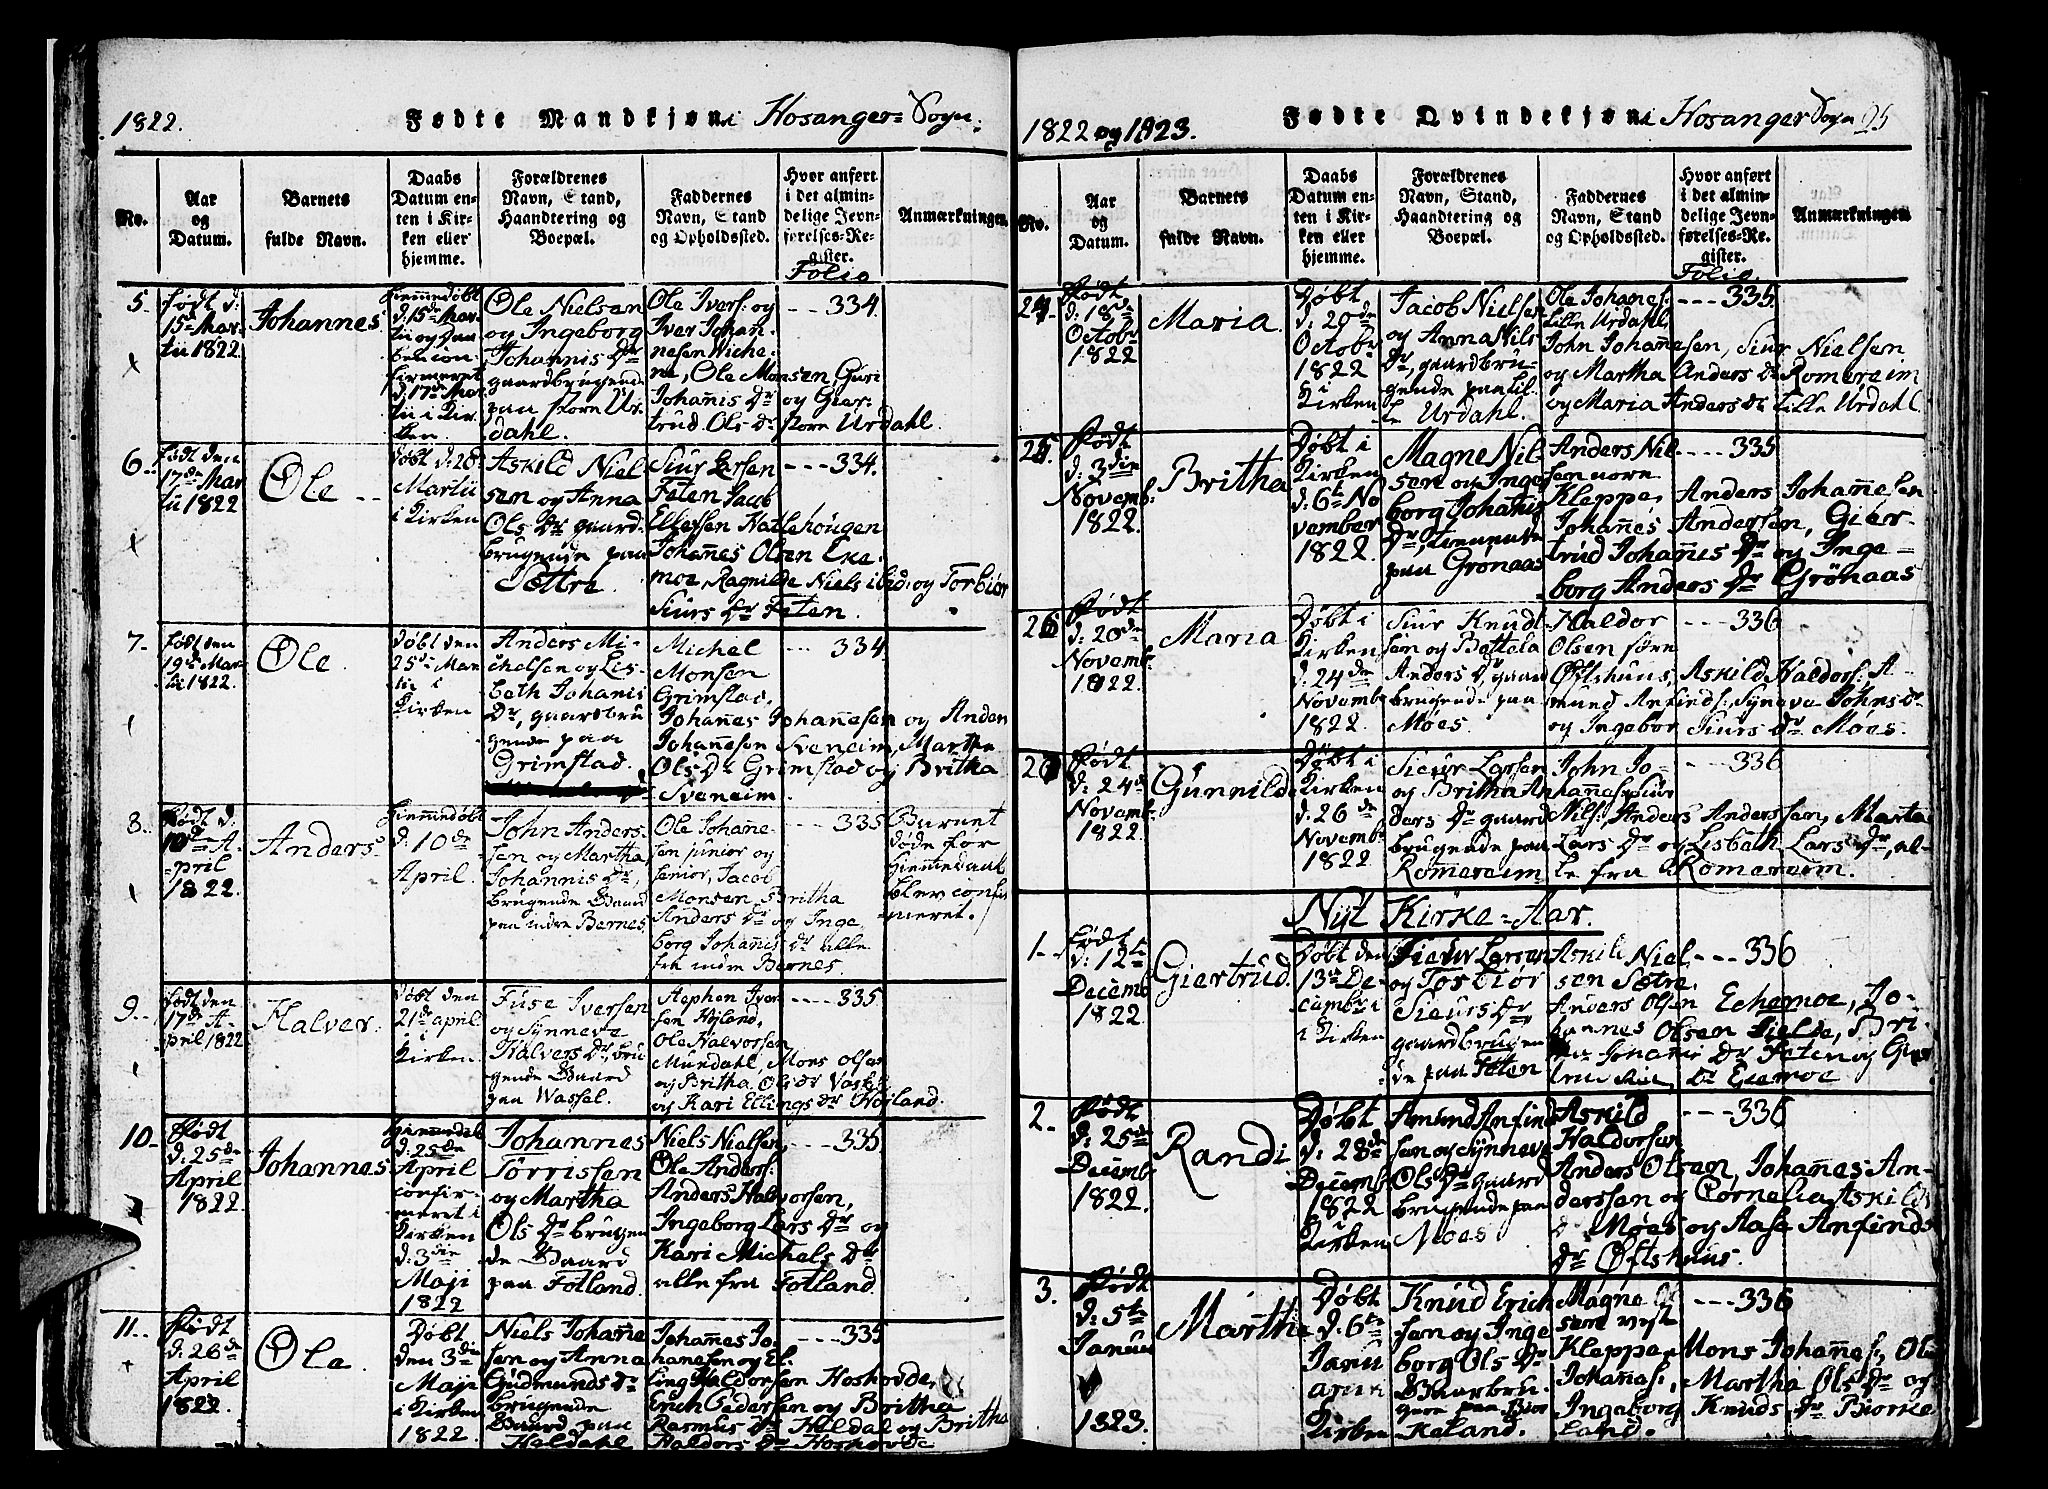 1822.
Fødte Mandkjøn i Hosanger Sogn.
No.
Aar
og
Datum.
Barnets
fulde Navn.
Daabs
Datum en-
ten i Kir-
ken eller
hjemme.
Forældrenes
Navn, Stand,
Haandtering og
Boepæl.
Faddernes
Navn, Stand
og Opholdssted.
Hvor anført
i det almin-
delige Jevn-
førelses-Re-
gister.
Folio
Anmærkninger.
5.
født d.
15de Mar-
tii 1822
Johannes
hiemmedøbt
d. 15de Mar-
tii og Daa-
ben con-
firmeret
d. 17de Mar
tii i Kir-
ken.
Ole Nielsen
og Ingeborg
Johannis Dr
gaardbrugende
paa store Ur-
dahl.
Ole Ivers: og
Iver Johan-
nesen Wiche-
ne, Ole Monsen, Guri
Johannis Dr og Gier-
trud Ols Dr store Urdahl.
---334.
6.
født den
17de Mar
tii 1822
Ole
døbt d. 28
Martii
i Kirken
Askild Niel
sen og Anna
Ols Dr gaard-
brugende paa
Sættre
Siur Larsen
Feten Jacob
Ellefsen Hatlehougen
Johannes Olsen Exe-
moe, Ragnilde Niels ibid: og Torbiør
Siurs Dr Feten.
---334.
7.
født den
19de Mar
tii 1822.
Ole.
døbt den
25de Mar
tii i
Kirken
Anders Mi-
chelsen og Lis-
beth Johanis
Dr, gaardbru
gende paa
Grimstad.
Michel
Monsen
Grimstad,
Johannes Johannesen og Anders
Johannesen Sveneim, Martha
Ols Dr Grimstad og Britha
Sveneim.
---334.
8.
Født d.
10de A-
pril
1822.
Anders
hiemmedøbt
d. 10de
April.
John Anders-
sen og Martha
Johannis Dr,
brugende Gaard
paa indre Bernes
Ole Johanne-
sen junior og
senior, Jacob
Monsen, Britha
Anders Dr og Inge
borg Johanis Dr alle
fra indre Bernes.
---335
Barnet
døde før
hiemmedaab
blev confir
meret.
9.
født den
17de A-
pril 1822
Halver.
døbt den
21de april
i
Kirken
Fuse Iversen
og Synneva
Halvers Dr, bru
gende Gaard
paa Wassel.
Stephen Iver
sen Høyland,
Ole Halvorsen
Mundahl, Mons Olsen
og Britha
og Kari Ellings Dr Høyland.
---335.
10.
Født
d: 25de
April
1822.
Johannes
hiemmedøbt
d. 25de
April
confir-
meret i
Kirken
d: 3die
Maji
1822
Johannes
Torrissen
og Martha
Ols Dr brugen
de Gaard
paa Fotland.
Niels Nielsen,
Ole Anders:
Anders Halvorsen,
Ingeborg Lars Dr og
Kari Michels Dr
alle fra Fotland.
---335.
11.
Født
d: 26de
April
1822.
Ole.
Døbt
den 3die
Maji
i Kirken
1822
Niels Johanne
sen og Anna
Gudmunds Dr
brugende
Gaard paa
Haldahl
Johannes Jo-
hanesen og El-
ling Haldorsen Hoshovde,
Erich Pedersen og Britha
Rasmus Dr Haldal og Britha
Haldors Dr Hoshovde
---335
1822 og 1823.
Fødte Qvindekjøn i Hosanger Sogn 25
No.
Aar
og
Datum.
Barnets
fulde Navn.
Daabs
Datum en-
ten i Kir-
ken eller
hjemme.
Forældrenes
Navn, Stand,
Haandtering og
Boepæl.
Faddernes
Navn, Stand
og Opholdssted.
Hvor anført
i det almin-
delige Jevn-
førelses-Re-
gister.
Folio.
Anmærkningen
24.
Født
d: 18de
Octobr
1822
Maria.
Døbt
d: 20de
Octobr
1822
i
Kirken
Jacob Nielsen
og Anna Nils
Dr, gaardbru-
gende paa lil-
le Urdahl.
Ole Johanes:
Lille Urdahl,
John Johannesen, Siur Nielsen
og Martha Anders Dr Romereim
og Maria Anders Dr Lille Urdahl.
---335
25.
Født
d: 3die
Novemb:
1822.
Britha
Døbt i
Kirken
d: 6te No
vember
1822.
Magne Nil
sen og Inge
borg Johanis
Dr, tienende
paa Grønaas
Anders Nil-
sen norre
Kleppe, Anders Johannesen
Johannes Andersen, Gier-
trud Johannis Dr og Inge-
borg Anders Dr Grönaas
---335
26
Født
d: 20de
Novemb:
1822.
Maria
Døbt i
Kirken
d. 24de
Novembr
1822.
Siur Knud-
sen og Bottela
Anders Dr gaard
brugende paa
Møes.
Haldor
Olsen
Øftshuus, Askild Haldors: A-
mund Anfinds: Syneva Johns Dr
og Ingebor Siurs Dr Møes.
---336
27
Født
d: 24de
Novemb:
1822.
Gunnilde
Døbt i
Kirken
d. 26de
Novembr
1822
Sieur Larsen
og Britha An
ders Dr gaard
brugende paa
Romereim
John Jo-
hannes: Siur
Nils:, Anders Anderssen, Marta
Lars Dr og Lisbath Lars Dr, al-
le fra Romereim.
---336
Nyt Kirke-Aar.
1.
født
d: 12te
Decemb
1822.
Giertrud
Døbt den
13de De-
cembr i
Kirken
Sieur Larsen
og Torbiør
Sieurs Dr,
gaardbrugen
de paa Feten
Askild Niel
sen Sætre,
Anders Olsen Echemoe, Jo-
hannes Olsen Fielde, Bri
Johanis Dr Feten og Gier
Dr Exemoe
---336
2.
Født
d: 25de
Decemb
1822.
Randi
Døbt
d: 28de
Decemb
1822
Kirken
Amund Anfind
sen og Synneve
Ols Dr gaard
brugende paa
Møes
Askild
Haldorsen
Anders Olsen, Johannes An-
derssen og Cornelia Askilds
Dr Møes og Aase Anfinds
Dr Øftshuus.
---336
3.
Født
d: 5te
Januari
1823.
Martha
Døbt
d. 6te
Janu
arii i
Kirken
Knud Erich
sen og Inge
borg Ols Dr
Gaardbru-
gere paa Bior
keland.
Magne
sen vest
Kleppe, Mons Johannes:, Ole
Johannes:, Martha Ols Dr og
Ingeborg Knuds Dr Biorke
land.
---336